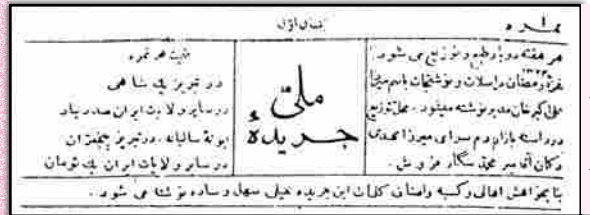 نمره ۱
هر هفته دو بار طبع و توزیع می شود
غره رمضان ۱۳۲۴ مراسلات و نوشتجات باسم میرزا
علی اکبر خان مدیر نوشته میشود. محل توزیع
در راسته بازار دم سرای میرزا مهدی
دکان آقا میر محمد سیگار فروش.
ملی
جریدهٔ
قیمت هر نمره
در تبریز یک شاهی
در سایر ولایت ایران صد دینار
ابونهٔ سالیانه. در تبریز پنجقران
در سایر ولایات ایران یک تومان
بنا بخواهش اهالی و کسبه و اصناف کلمات این جریده خیلی سهل و ساده نوشته می شود.